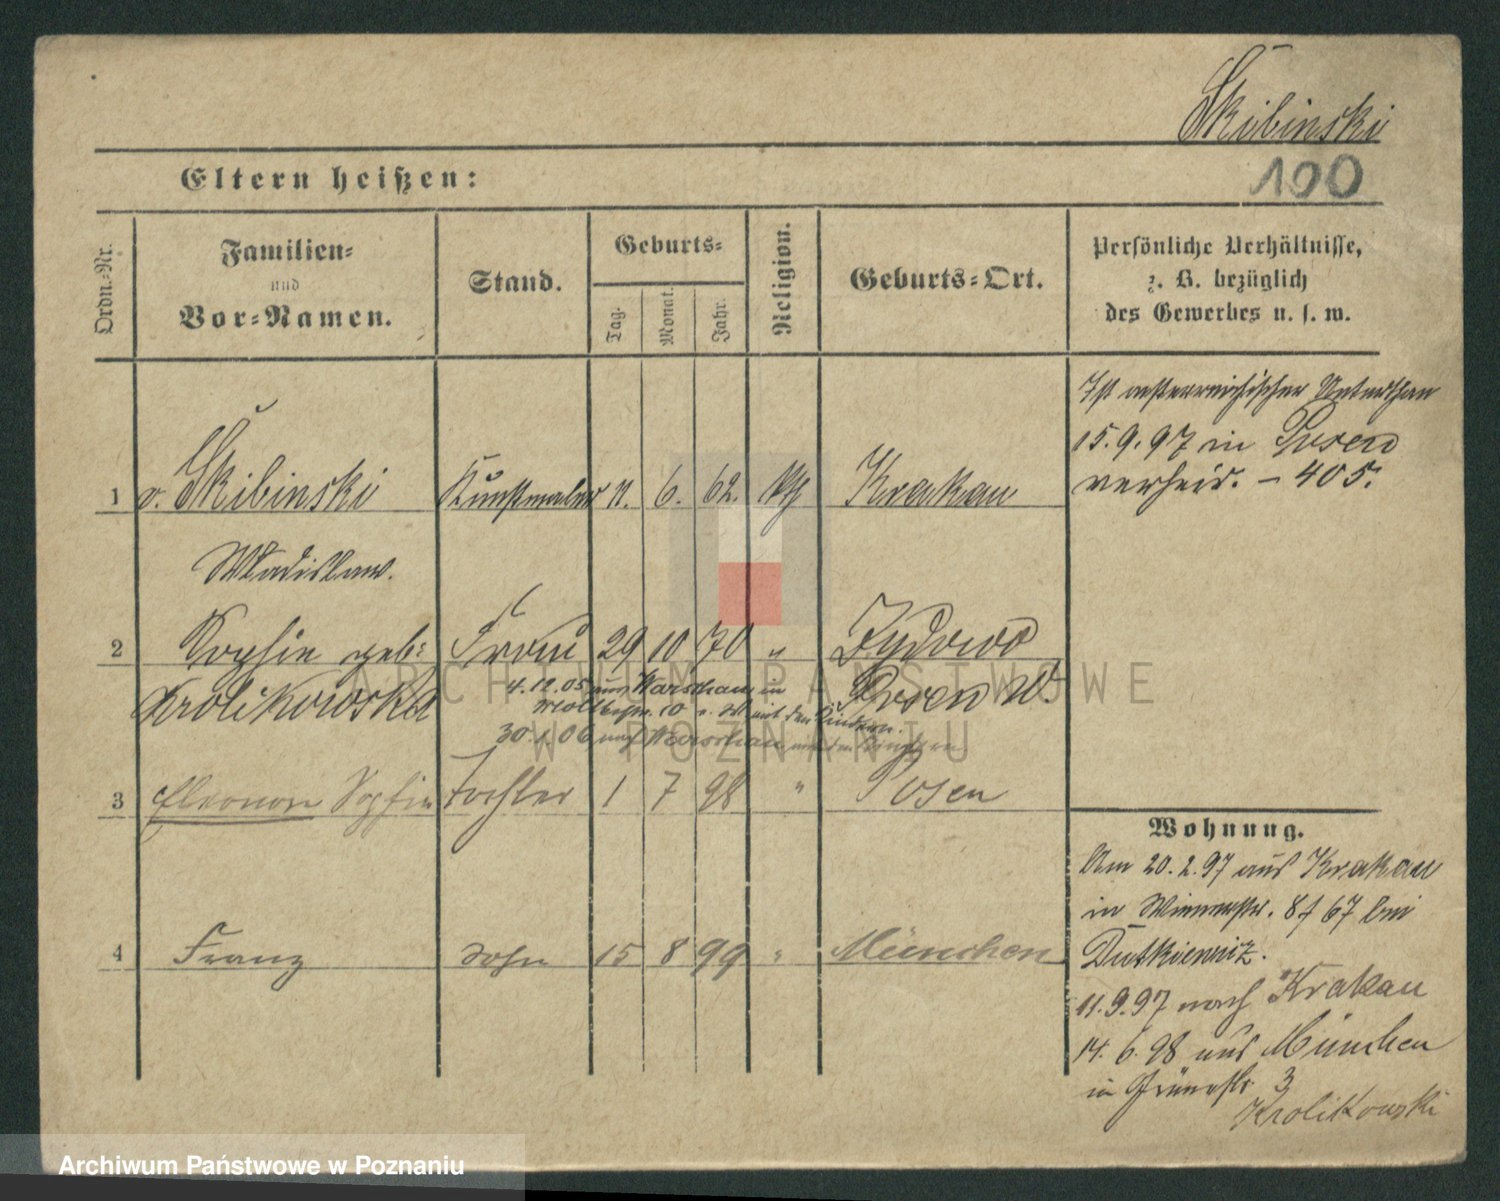 Skibinski
100
Eltern heißen:
Ordn.-Nr.
Familien-
und
Vor-Namen.
Stand.
Geburts-
Tag.
Monat.
Jahr.
Religion.
Geburts-Ort.
Persönliche Verhältnisse,
z. B. bezüglich
des Gewerbes u. s. w.
Ist oesterreichischer Unterthan
15.9.97 in Posen
verheir. - 405.
1 v. Skibinski Kunstmaler 11. 6. 62. kth Krakau
Wladislaw.
2 Sophie geb: Frau 29 10 70 " Zydowo
Krolikowska
4.12.05 aus Warschau in
Posen W.
10 mit den Kindern.
30. 1. 06 nach Warschau
3 Eleonore Sophie Tochter 1 7 98 " Posen
4 Franz Sohn 15 8 99 " München
Wohnung.
Am 20.2.97 aus Krakau
in Wienerstr. 8 f 67 bei
Dutkiewicz.
11.9.97 nach Krakau
14. 6. 98 aus München
in Grünestr. 3
Krolikowski
ARCHIWUM PAŃSTWOWE
W POZNANIU
Archiwum Państwowe w Poznaniu